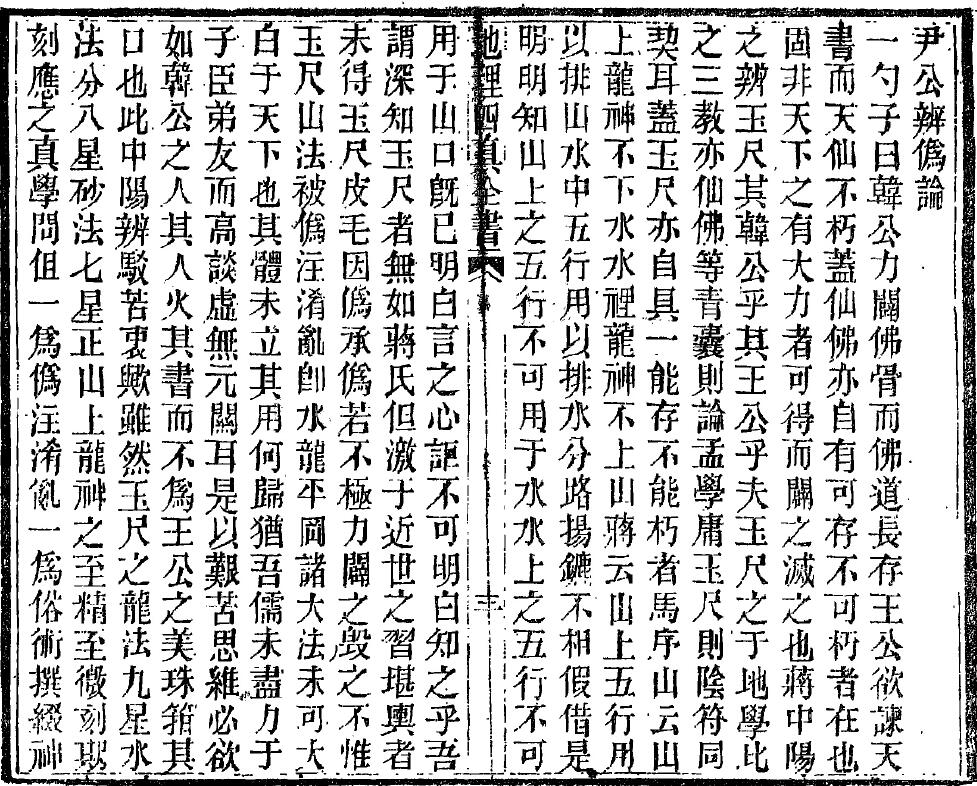 尹公辨僞論
一勺子曰韓公力闢佛骨而佛道長存王公欲諫天
書而天仙不朽蓋仙佛亦自有可存不可朽者在也
固非天下之有大力者可得而闢之滅之也蔣中陽
之辨玉尺其韓公乎其王公乎夫玉尺之于地學比
之三教亦仙佛等青囊則論孟學庸玉尺則陰符同
契耳蓋玉尺亦自具一能存不能朽者馬序山云山
上龍神不下水水裡龍神不上山蔣云山上五行用
以排山水中五行用以排水分路揚鑣不相假借是
明明知山上之五行不可用于水水上之五行不可
地理四真全書
三
用于山口旣已明白言之心詎不可明白知之乎吾
謂深知玉尺者無如蔣氏但激于近世之習堪輿者
未得玉尺皮毛因僞承僞若不極力闢之毁之不惟
玉尺山法被僞注淆亂卽水龍平岡諸大法未可大
白于天下也其體未立其用何歸猶吾儒未盡力于
子臣弟友而高談虛無元關耳是以艱苦思維必欲
如韓公之人其人火其書而不爲王公之美珠箝其
口也此中陽辨駁苦衷歟雖然玉尺之龍法九星水
法分八星砂法七星正山上龍神之至精至微刻期
刻應之真學問但一爲僞注淆亂一爲俗術撰綴神